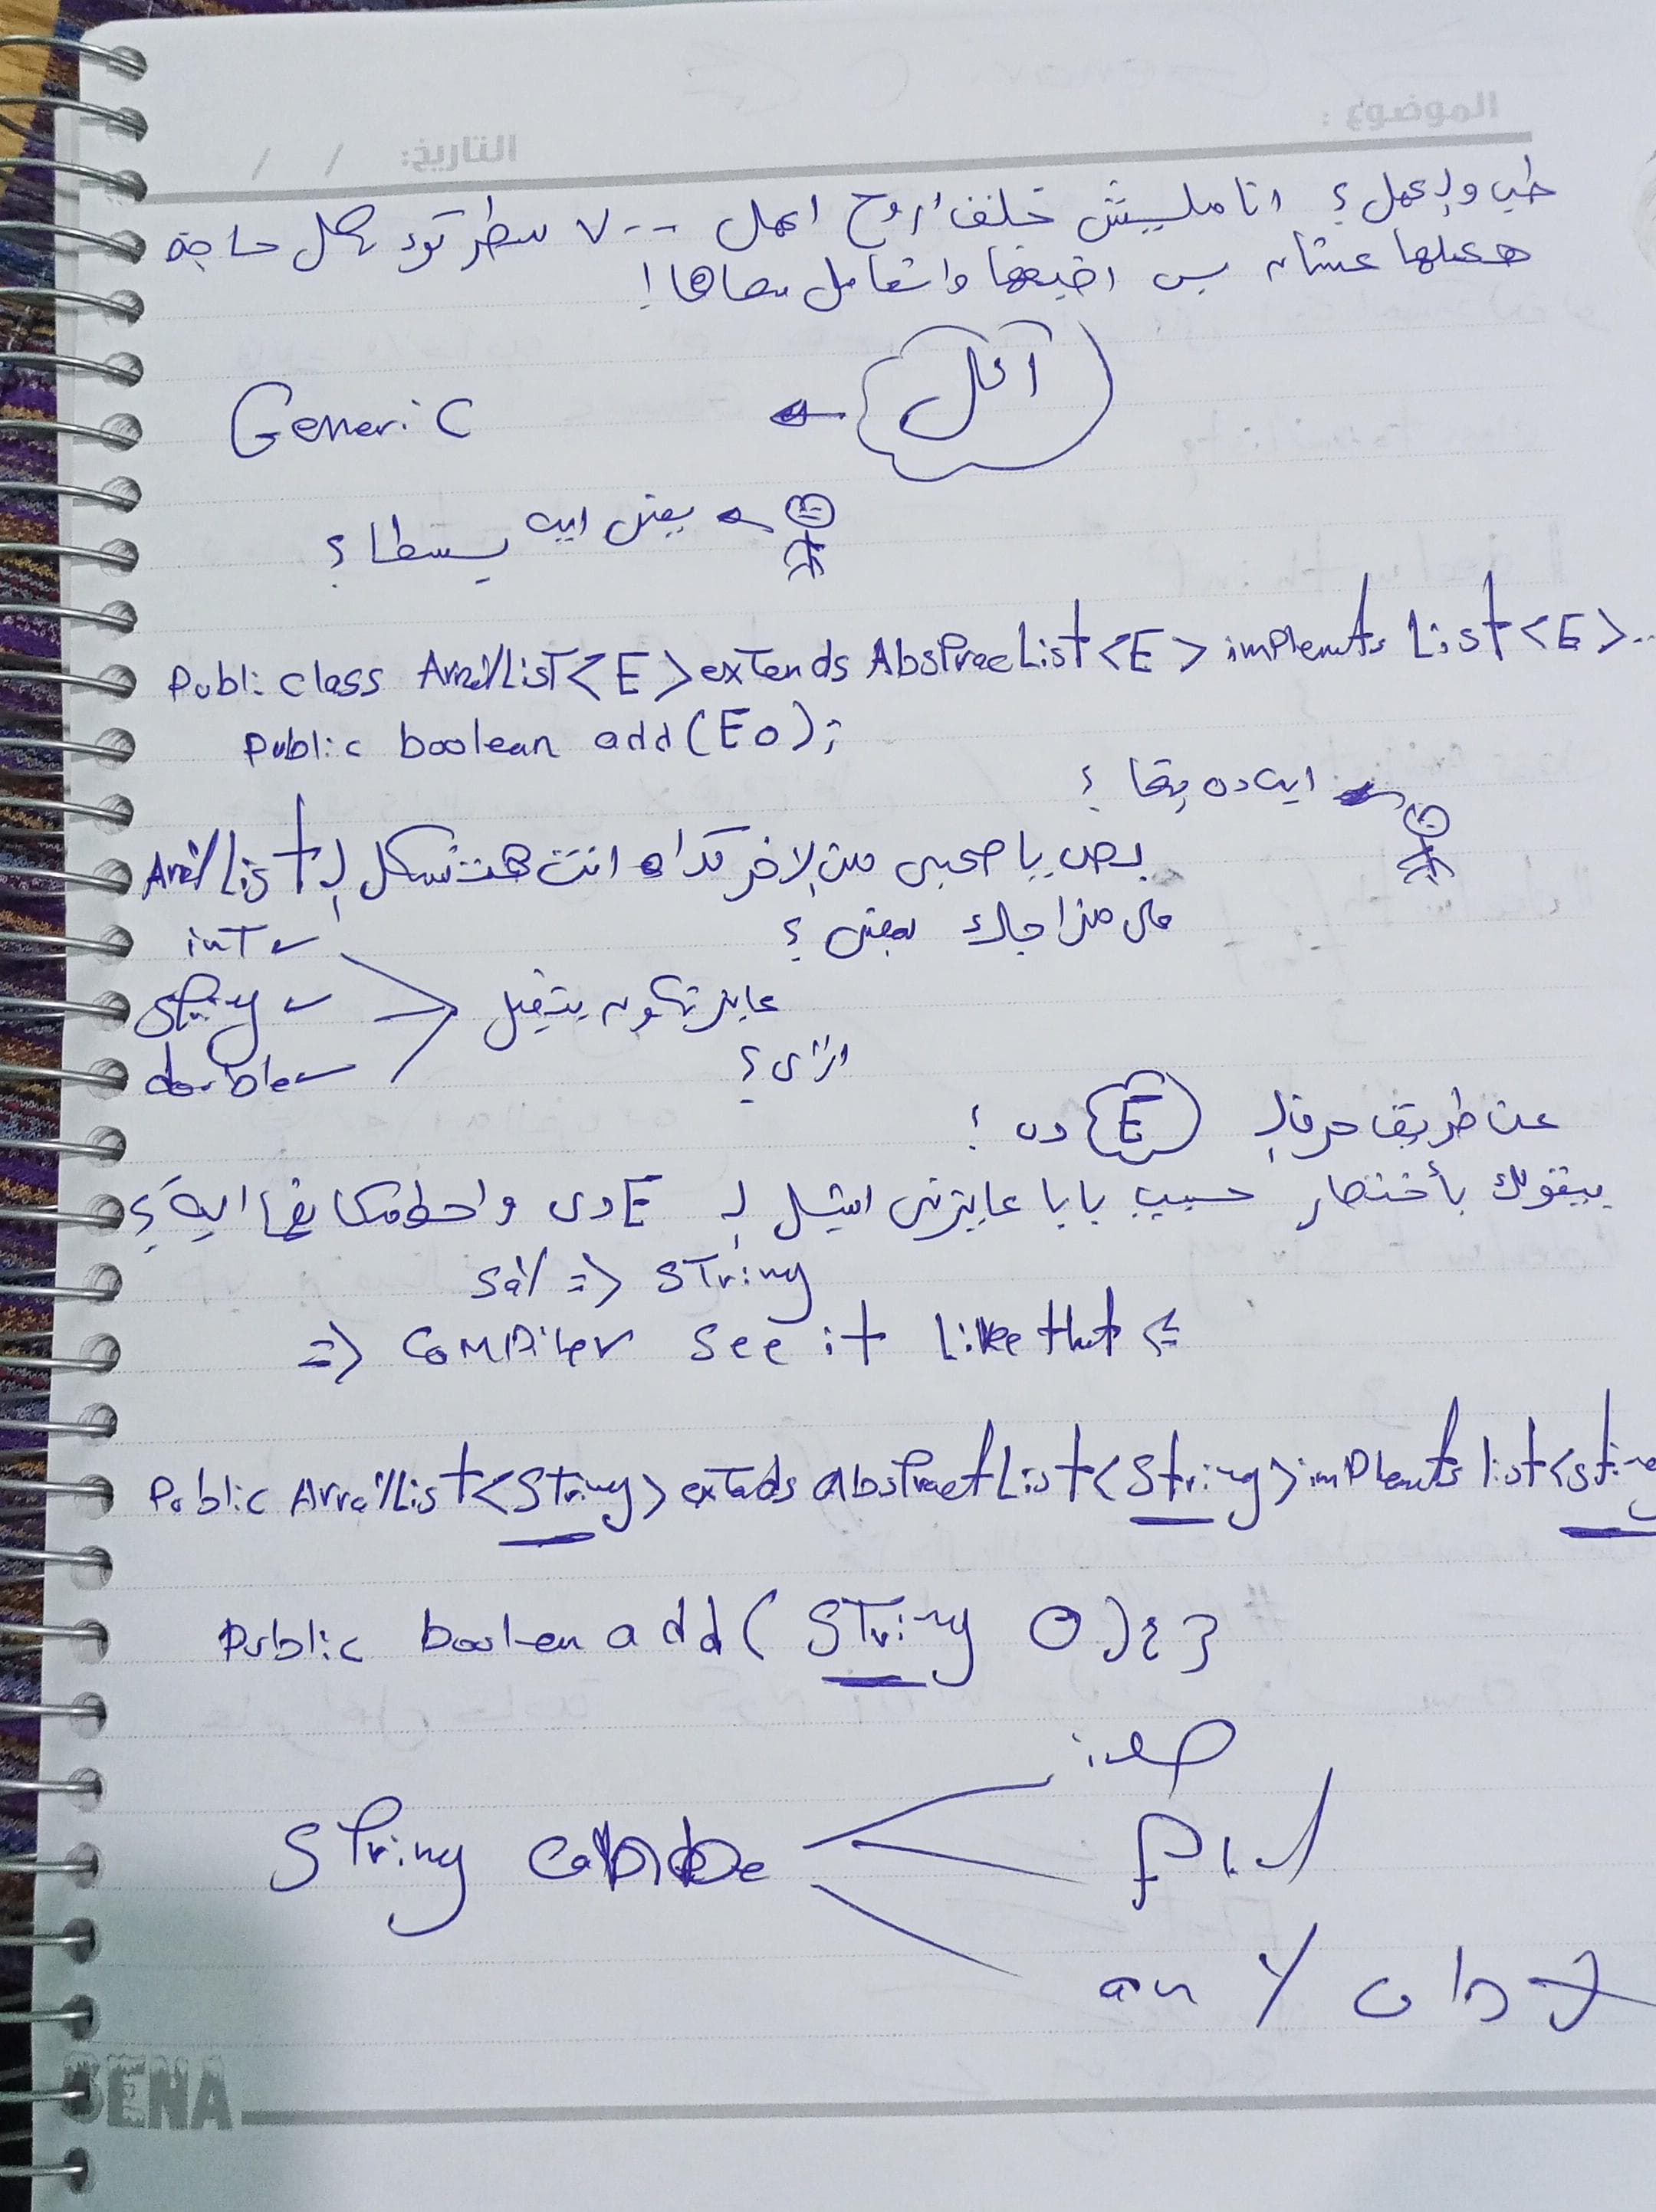 الموضوع :
التاريخ: / /
طب والعمل؟ انا مليش خلف اروح اعمل ٧٠٠٠ سطر كود لكل حاجة
هعملها عشان بس اضيفها واتعامل معاها!
Generic
يعني ايه يسطا؟
Publi class ArrayList<E>extends AbstracList<E> implemnts List<E>..
Public boolean add(E o);
ايه ده بقا؟
بص يا صحبي من الاخر كدا انت هتشكل ال ArrayList
على مزاجك بمعني؟
int
String
double
عايز تكون بتقبل
ازاى؟
عن طريق حرف ال E ده!
بيقولك بأختصار حبيب بابا عايزني اشيل ال E دى واحط مكانها ايه؟
say => String
=> Compiler See it Like that
Public ArrayList<String>extads abstractList<String>implemts list<string
Public boolen add( String O){}
String
any obj
SENA